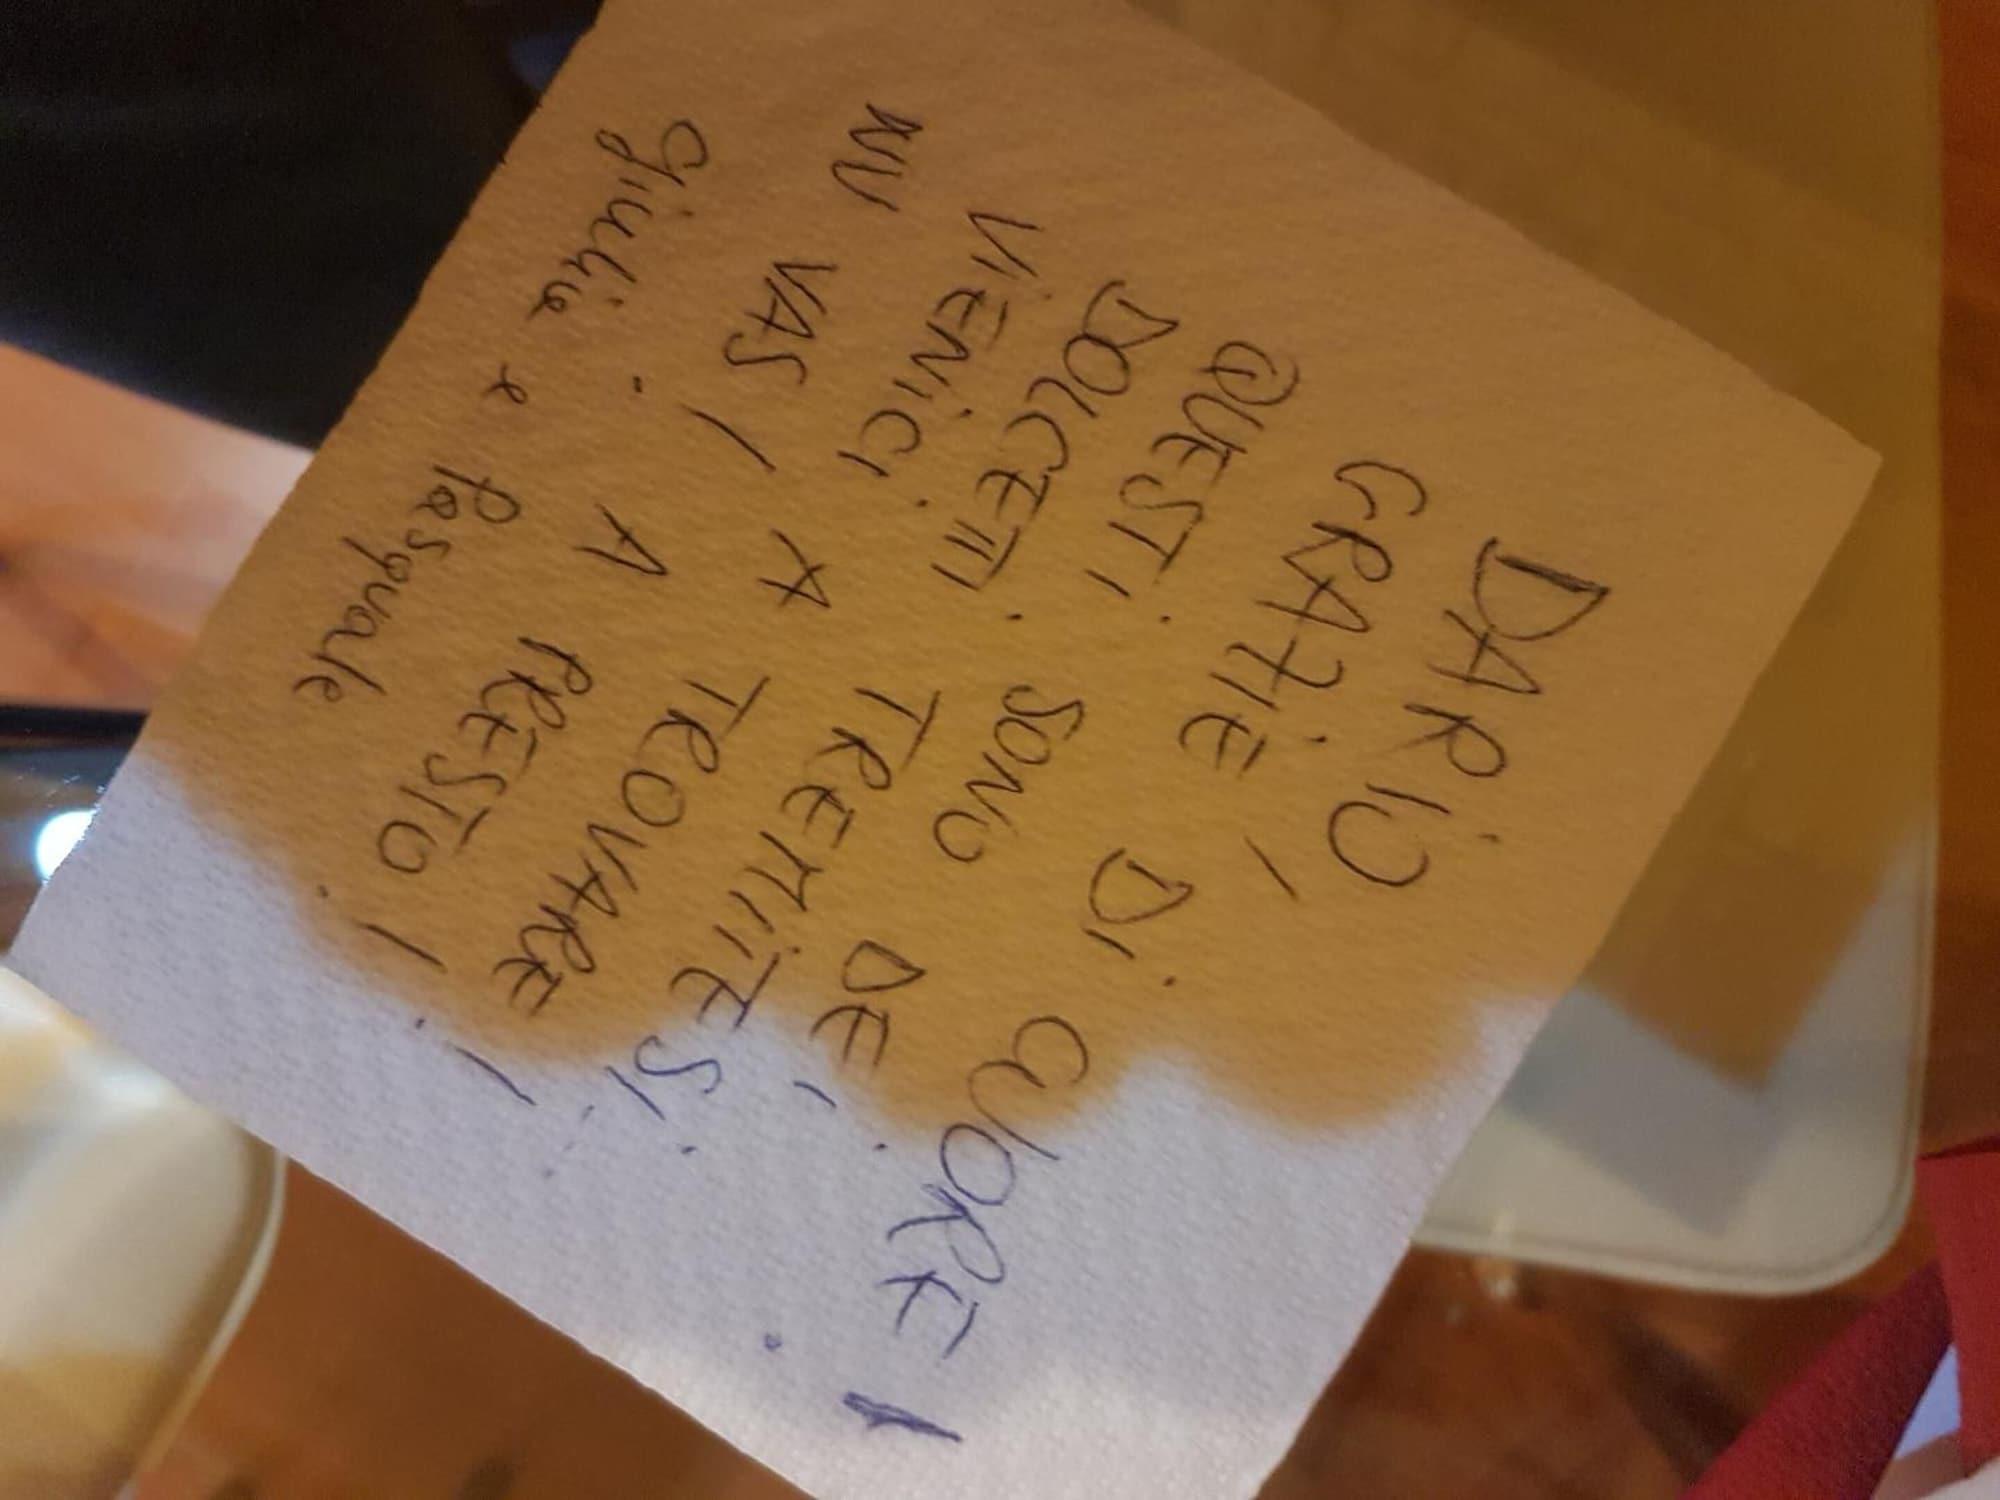 DARIO,
GRAZIE, DI CUORE!
QUESTI SONO DE I
DOLCETTI TREMITESI.
VIENICI A TROVARE..
NU VAS! A PRESTO!!
Giulia e Pasquale